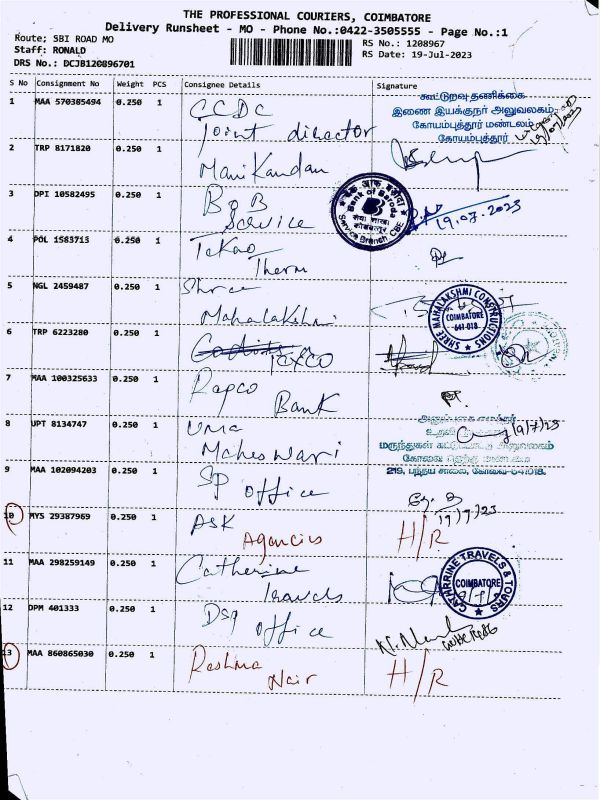 THE PROFESSIONAL COURIERS, COIMBATORE
Delivery Runsheet - MO - Phone No.:0422-3505555 - Page No.:1
Route; SBI ROAD MO
Staff: RONALD
DRS No.: DCJB120896701
RS No.: 1208967
RS Date: 19-Jul-2023
S No Consignment No Weight PCS Consignee Details Signature
1 MAA 570385494 0.250 1 CCDC
Joint director
கூட்டுறவு தணிக்கை
இணை இயக்குநர் அலுவலகம்
கோயம்புத்தூர் மண்டலம்
கோயம்புத்தூர்
19/07/2023
2 TRP 8171820 0.250 1 Manikandan
3 DPI 10582495 0.250 1 BOB
Service
Bank of Baroda
Service Branch, CBE
19.07.2023
4 POL 1583713 0.250 1 Takao
Therm
5 NGL 2459487 0.250 1 Shree
Mahalakshmi
SHREE MAHALAKSHMI CONSTRUCTIONS
COIMBATORE
641-018
6 TRP 6223280 0.250 1 Taxco
7 MAA 100325633 0.250 1 Repco
Bank
8 UPT 8134747 0.250 1 Uma
Maheswari
19/7/23
9 MAA 102094203 0.250 1 SP
office
219, பந்தய சாலை, கோவை-641018.
19/7/23
10 MYS 29387969 0.250 1 ASK
Agencies
H/R
11 MAA 298259149 0.250 1 Catherine
Travels
CATHARRINE TRAVELS & TOURS
COIMBATORE
12 DPM 401333 0.250 1 DSP
office
13 MAA 860865030 0.250 1 Reshma
Nair
H/R